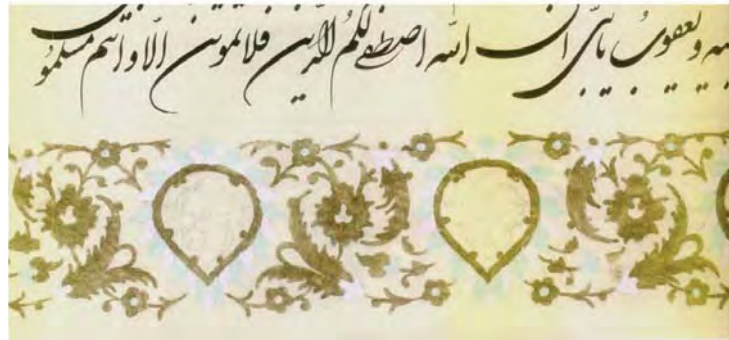 ويعقوب يا بنى ان الله اصطفى لكم الدين فلا تموتن الا وانتم مسلمون